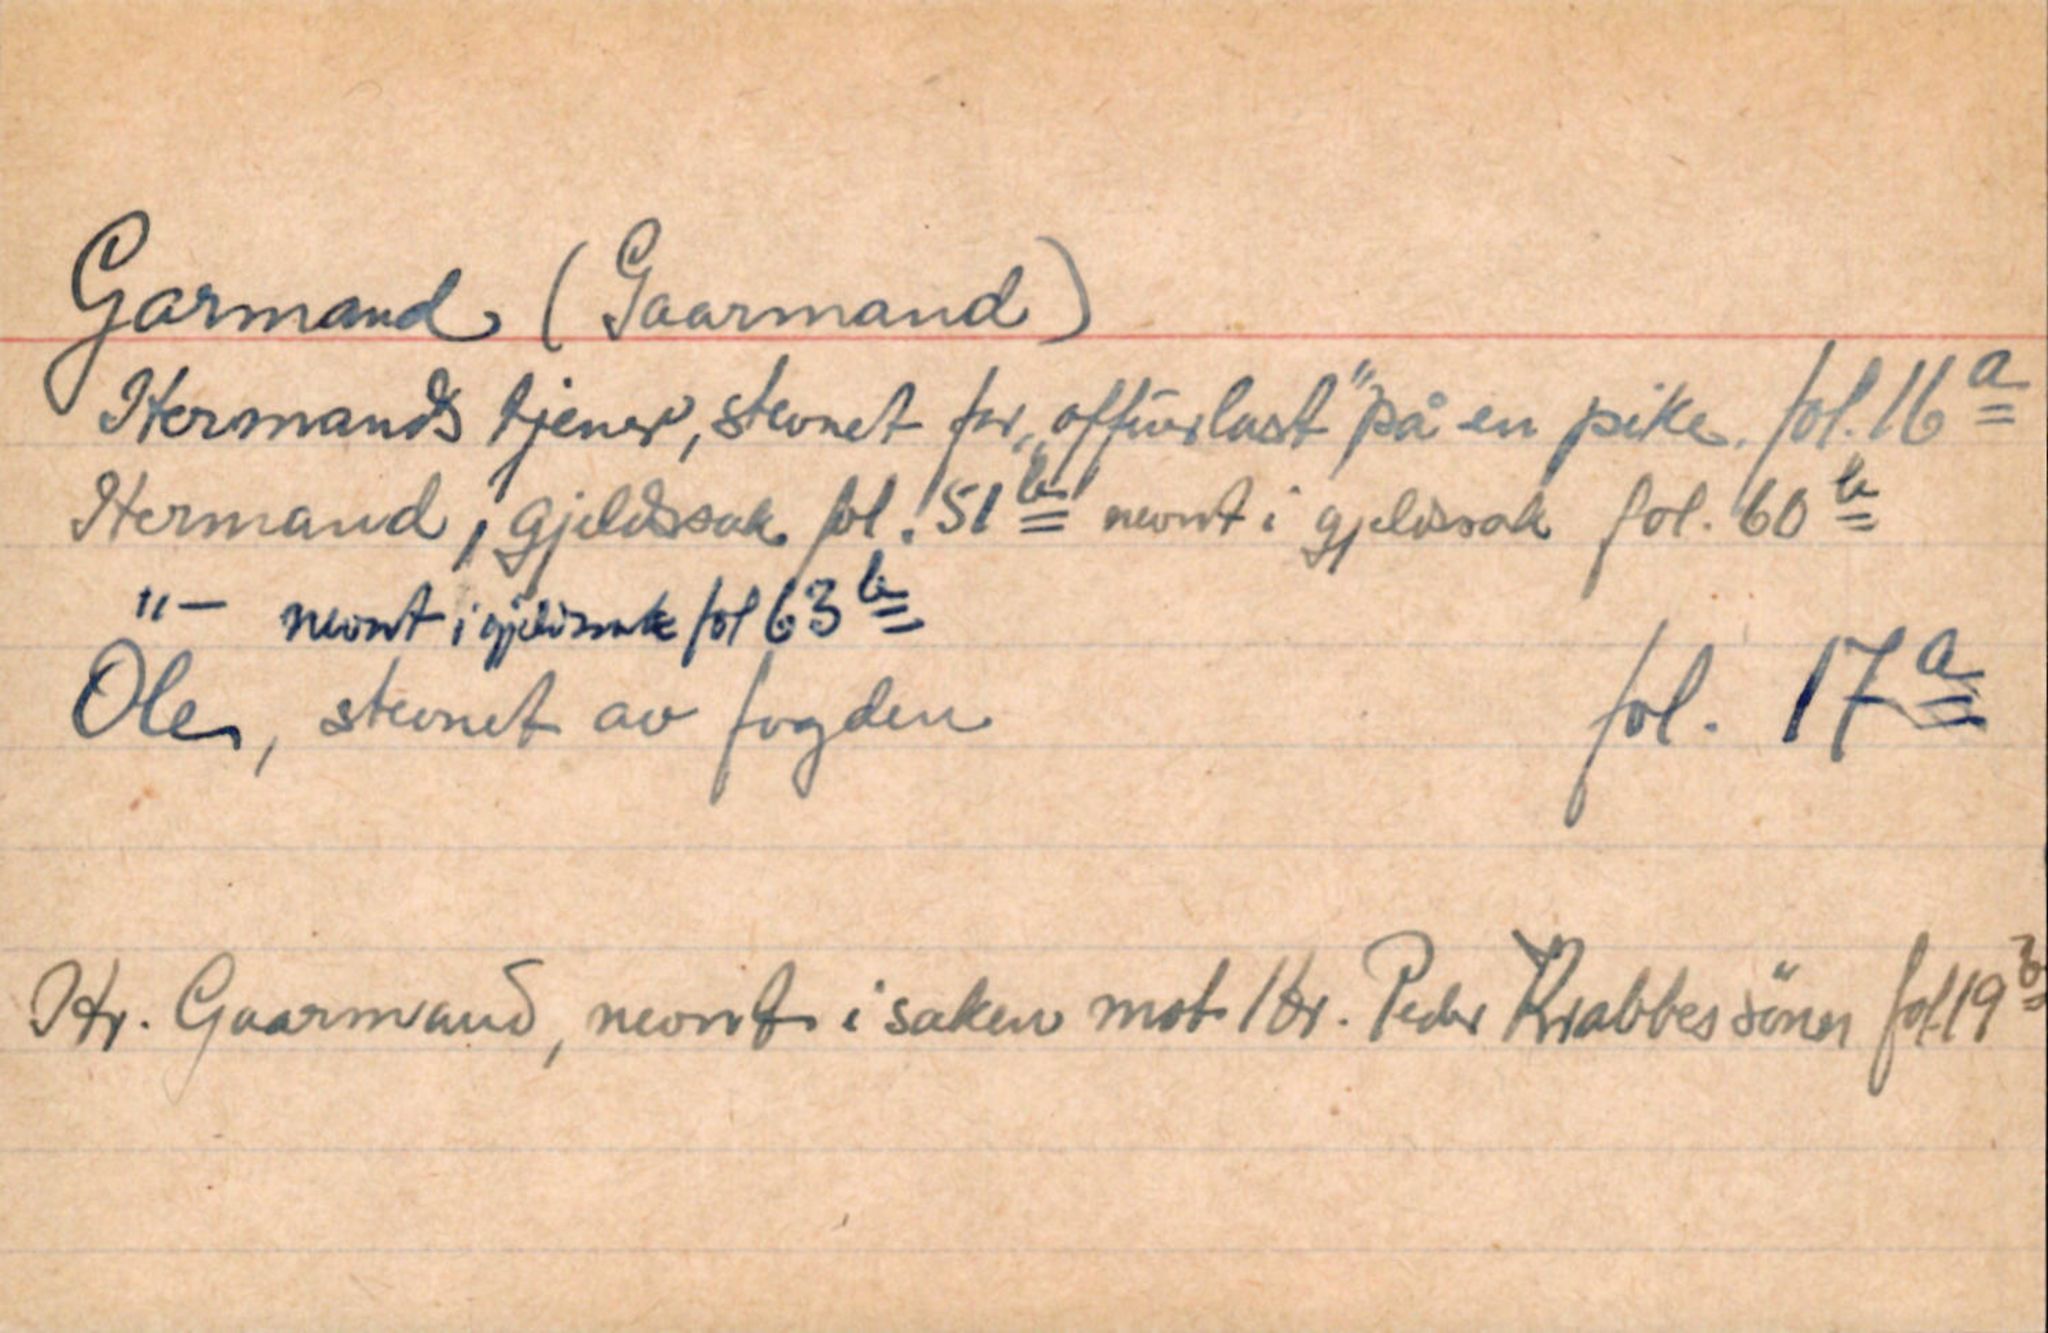 Garmand (Gaarmand)
Hermands tjener, stevnet for „offuerlast" på en pike. fol. 16a
Hermand, gjeldssak fol. 51b nevnt i gjeldssak fol. 60b
"– nevnt i gjeldssak fol 63b
Ole, stevnet av fogden fol. 17a
Hr. Gaarmand, nevnt i saken mot Hr. Peder Krabbes söner fol. 19b